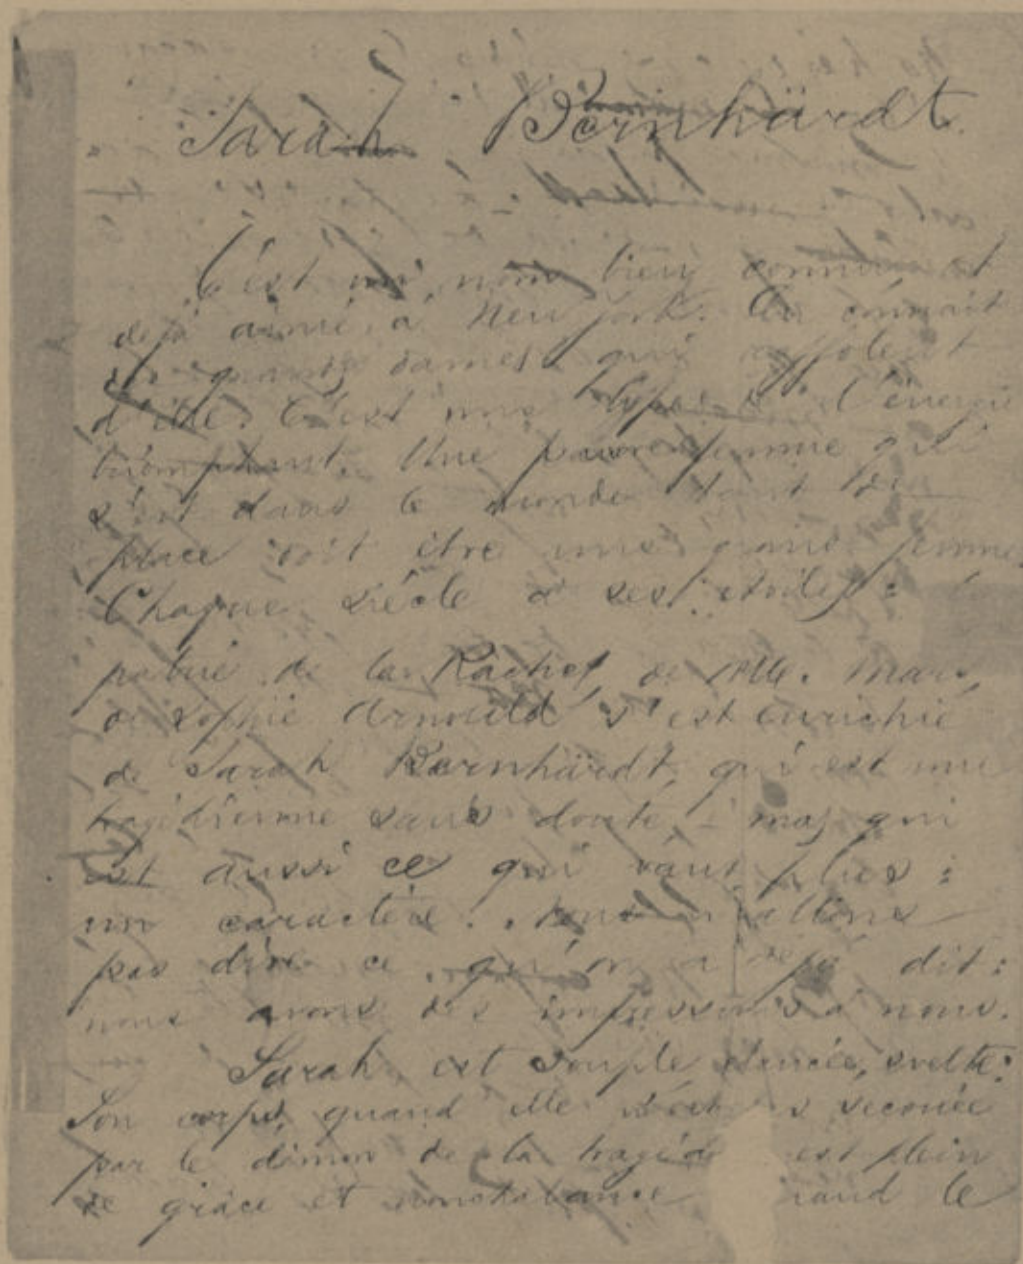 Sarah Bernhärdt.
C'est un nom bien connu et
déjà aimé, à New York. On connaît
grands dames qui affolent
d'elle. C'est une d'énergie
triomphant. Une pauvre femme qui
dans le monde tant de
place doit être une grand femme
Chaque siècle a ses étoiles: la
de la Rachel, de Mlle. Mars,
de Sophie Arnould s'est enrichie
de Sarah Bernhärdt, qui est une
tragédienne sans doute, mas qui
est aussi ce qui vaut plus:
un caractère. Nous n'allons
pas dire ce qu'on a déjà dit:
nous avons des impressions à nous.
Sarah est souple élancée, svelte:
Son corps, quand elle secouée
par le démon de la tragédie est plein
de grâce et nonchalance le